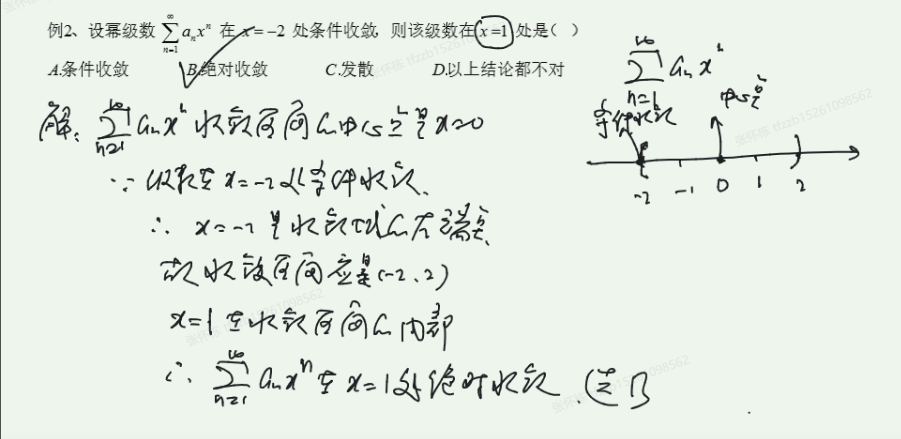 例2、设幂级数 $\sum_{n=1}^{\infty} a_n x^n$ 在 x=-2 处条件收敛, 则该级数在 x=1 处是( )
A.条件收敛 B.绝对收敛 C.发散 D.以上结论都不对
$\sum_{n=1}^{\infty} a_n x^n$
中心是
条件收敛
-2 -1 0 1 2
解: $\sum_{n=1}^{\infty} a_n x^n$ 收敛区间的中心点是x=0
∵ 级数在x=-2处条件收敛.
∴ x=-2是收敛区域的左端点
故收敛区间应是(-2、2)
x=1在收敛区间的内部
∴ $\sum_{n=1}^{\infty} a_n x^n$ 在x=1处绝对收敛.(选B